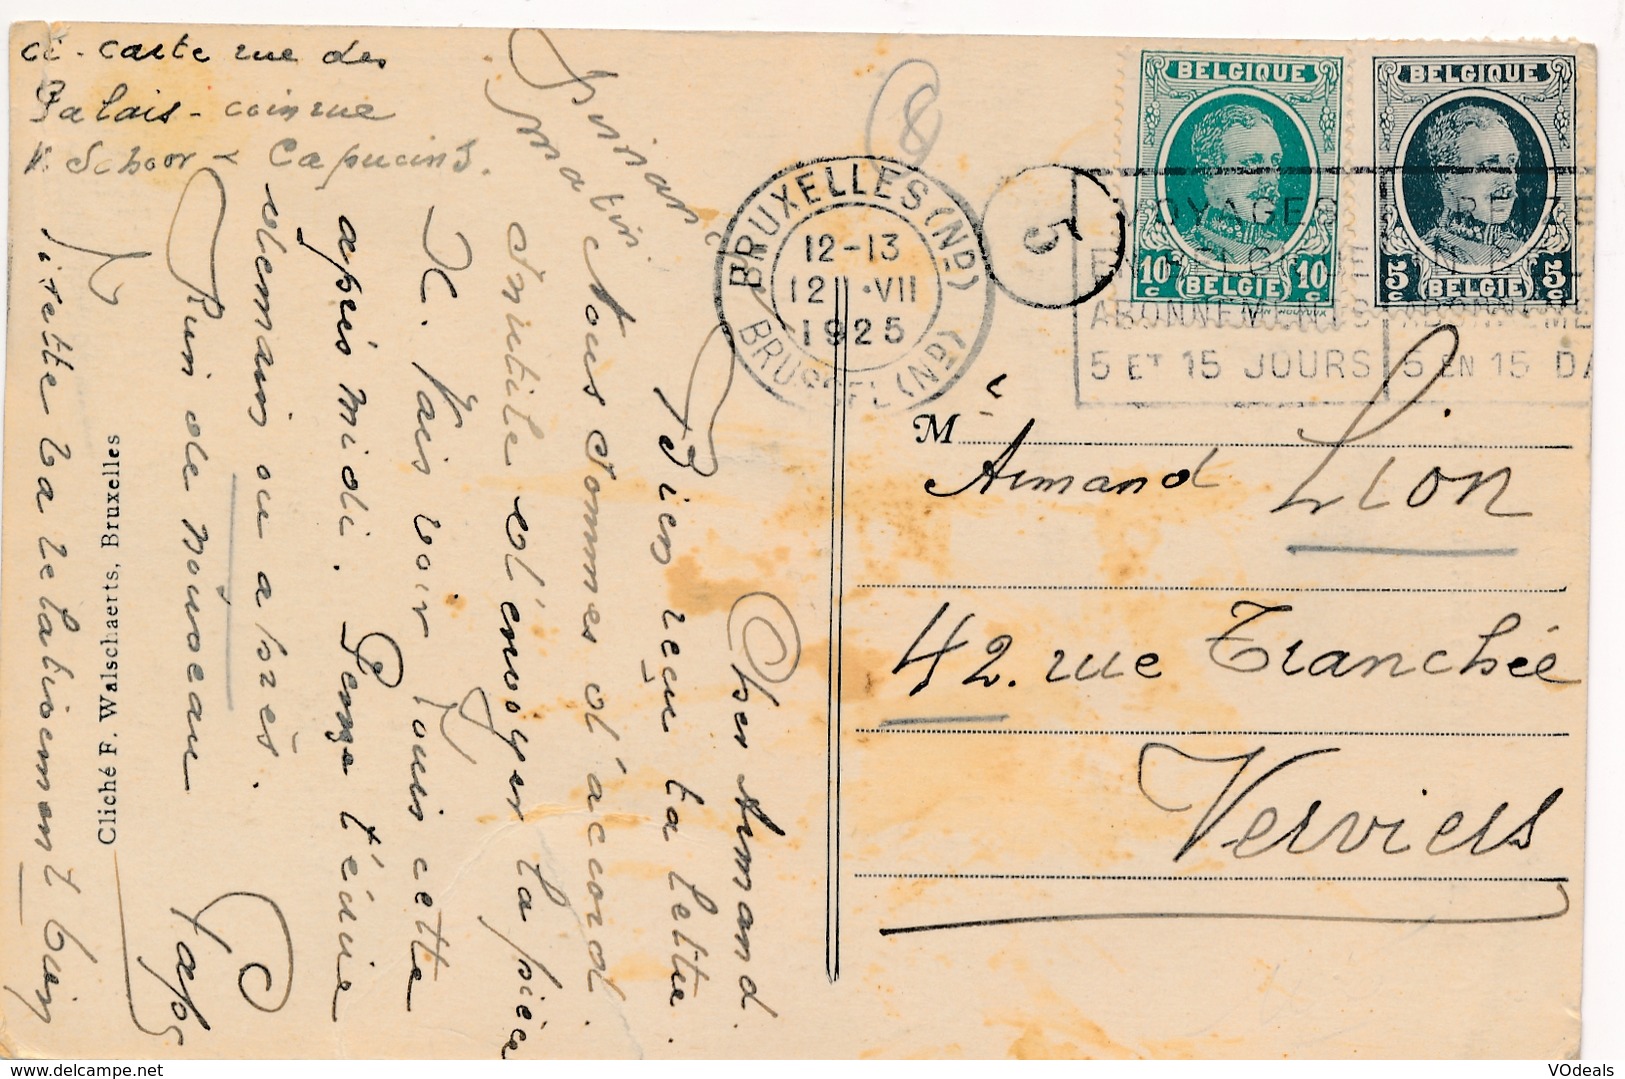 ci-carte rue des
Palais - coin rue
V. Schoor & Capucins.
BELGIQUE
10c 10c
BELGIË
BELGIQUE
5c 5c
BELGIË
BRUXELLES (ND)
12-13
12 VII
1925
BRUSSEL (ND)
5
8
VOYAGES
ABONNEMENTS
5 ET 15 JOURS
5 EN 15 DA
M
Armand Lion
42. rue Tranchée
Verviers
Vendredi matin
Cher Armand.
Bien reçu ta lettre.
Nous sommes d'accord.
Inutile d'envoyer la pièce
X. Vais voir Louis cette
après midi. Pense t'écrire
demain ou après.
Rien de nouveau
Papa
Cliché F. Walschaerts, Bruxelles
VOdeals